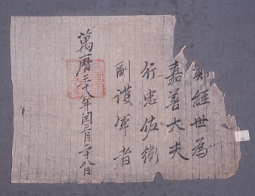 經世爲
嘉善大夫
行忠佐衛
副護軍者
萬曆三十八年閏三月二十八日